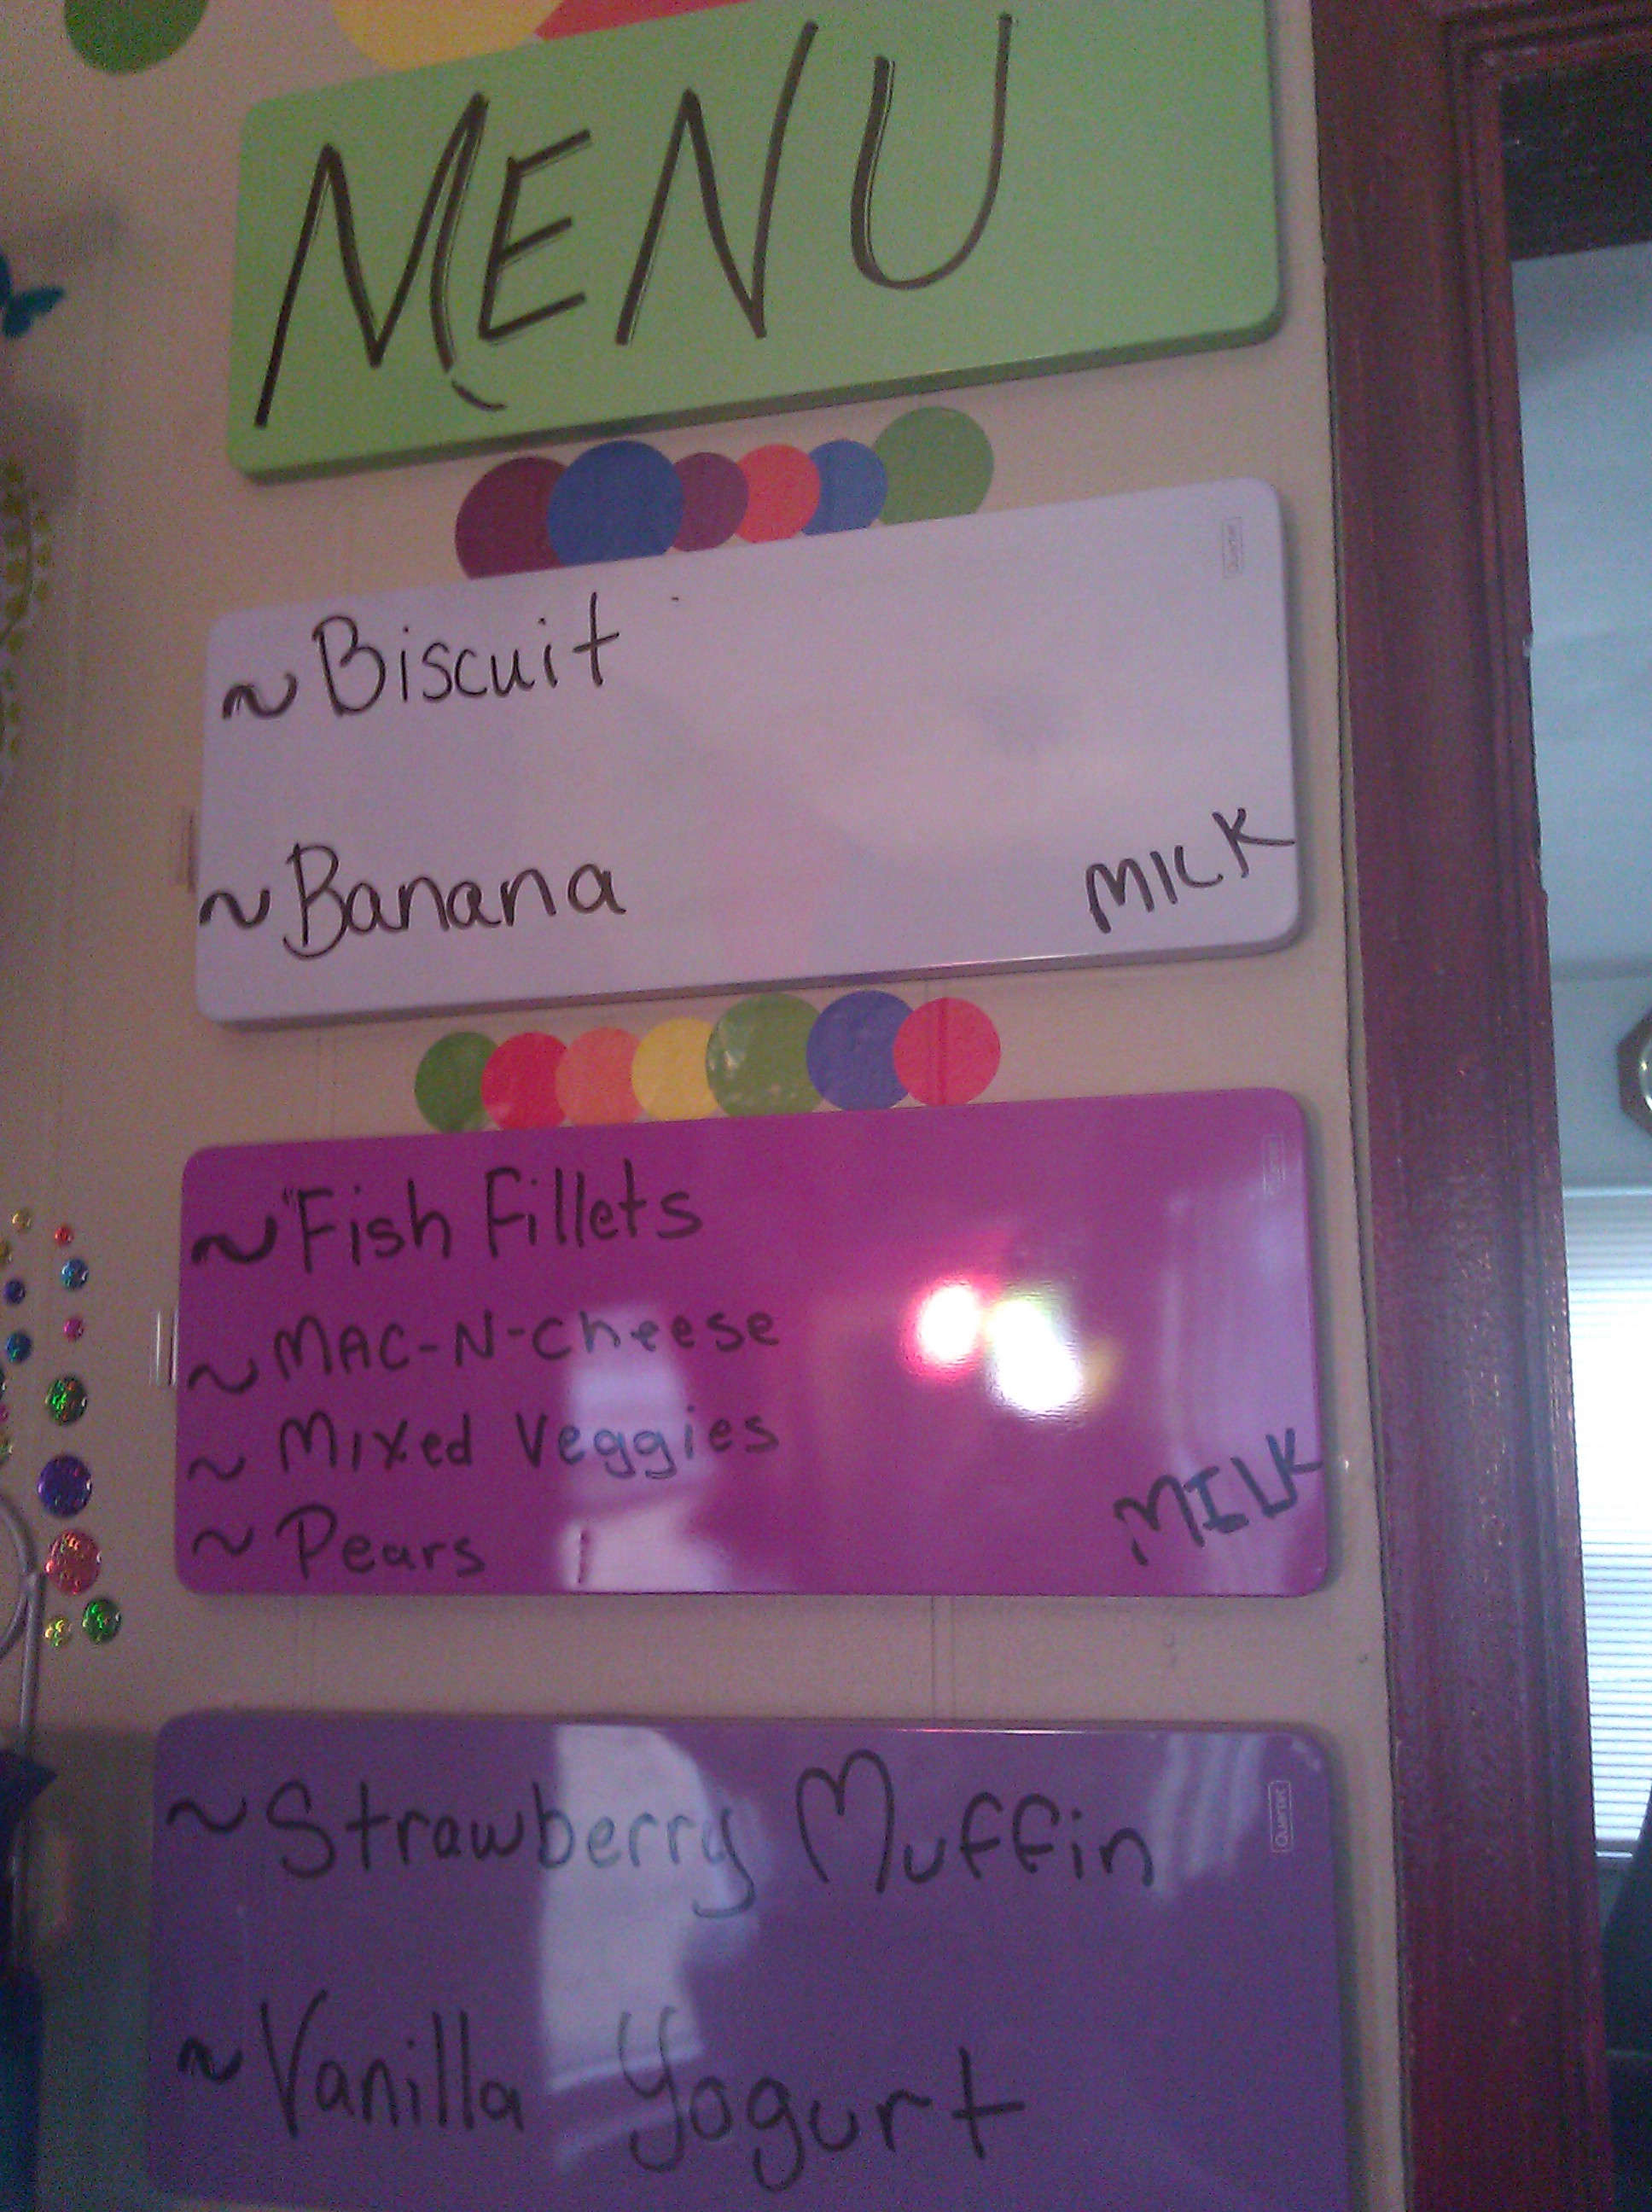 MENU
Quartet
~Biscuit
~Banana
MILK
~Fish Fillets
~MAC-N-Cheese
~Mixed Veggies
~Pears
MILK
Quartet
~Strawberry Muffin
~Vanilla Yogurt